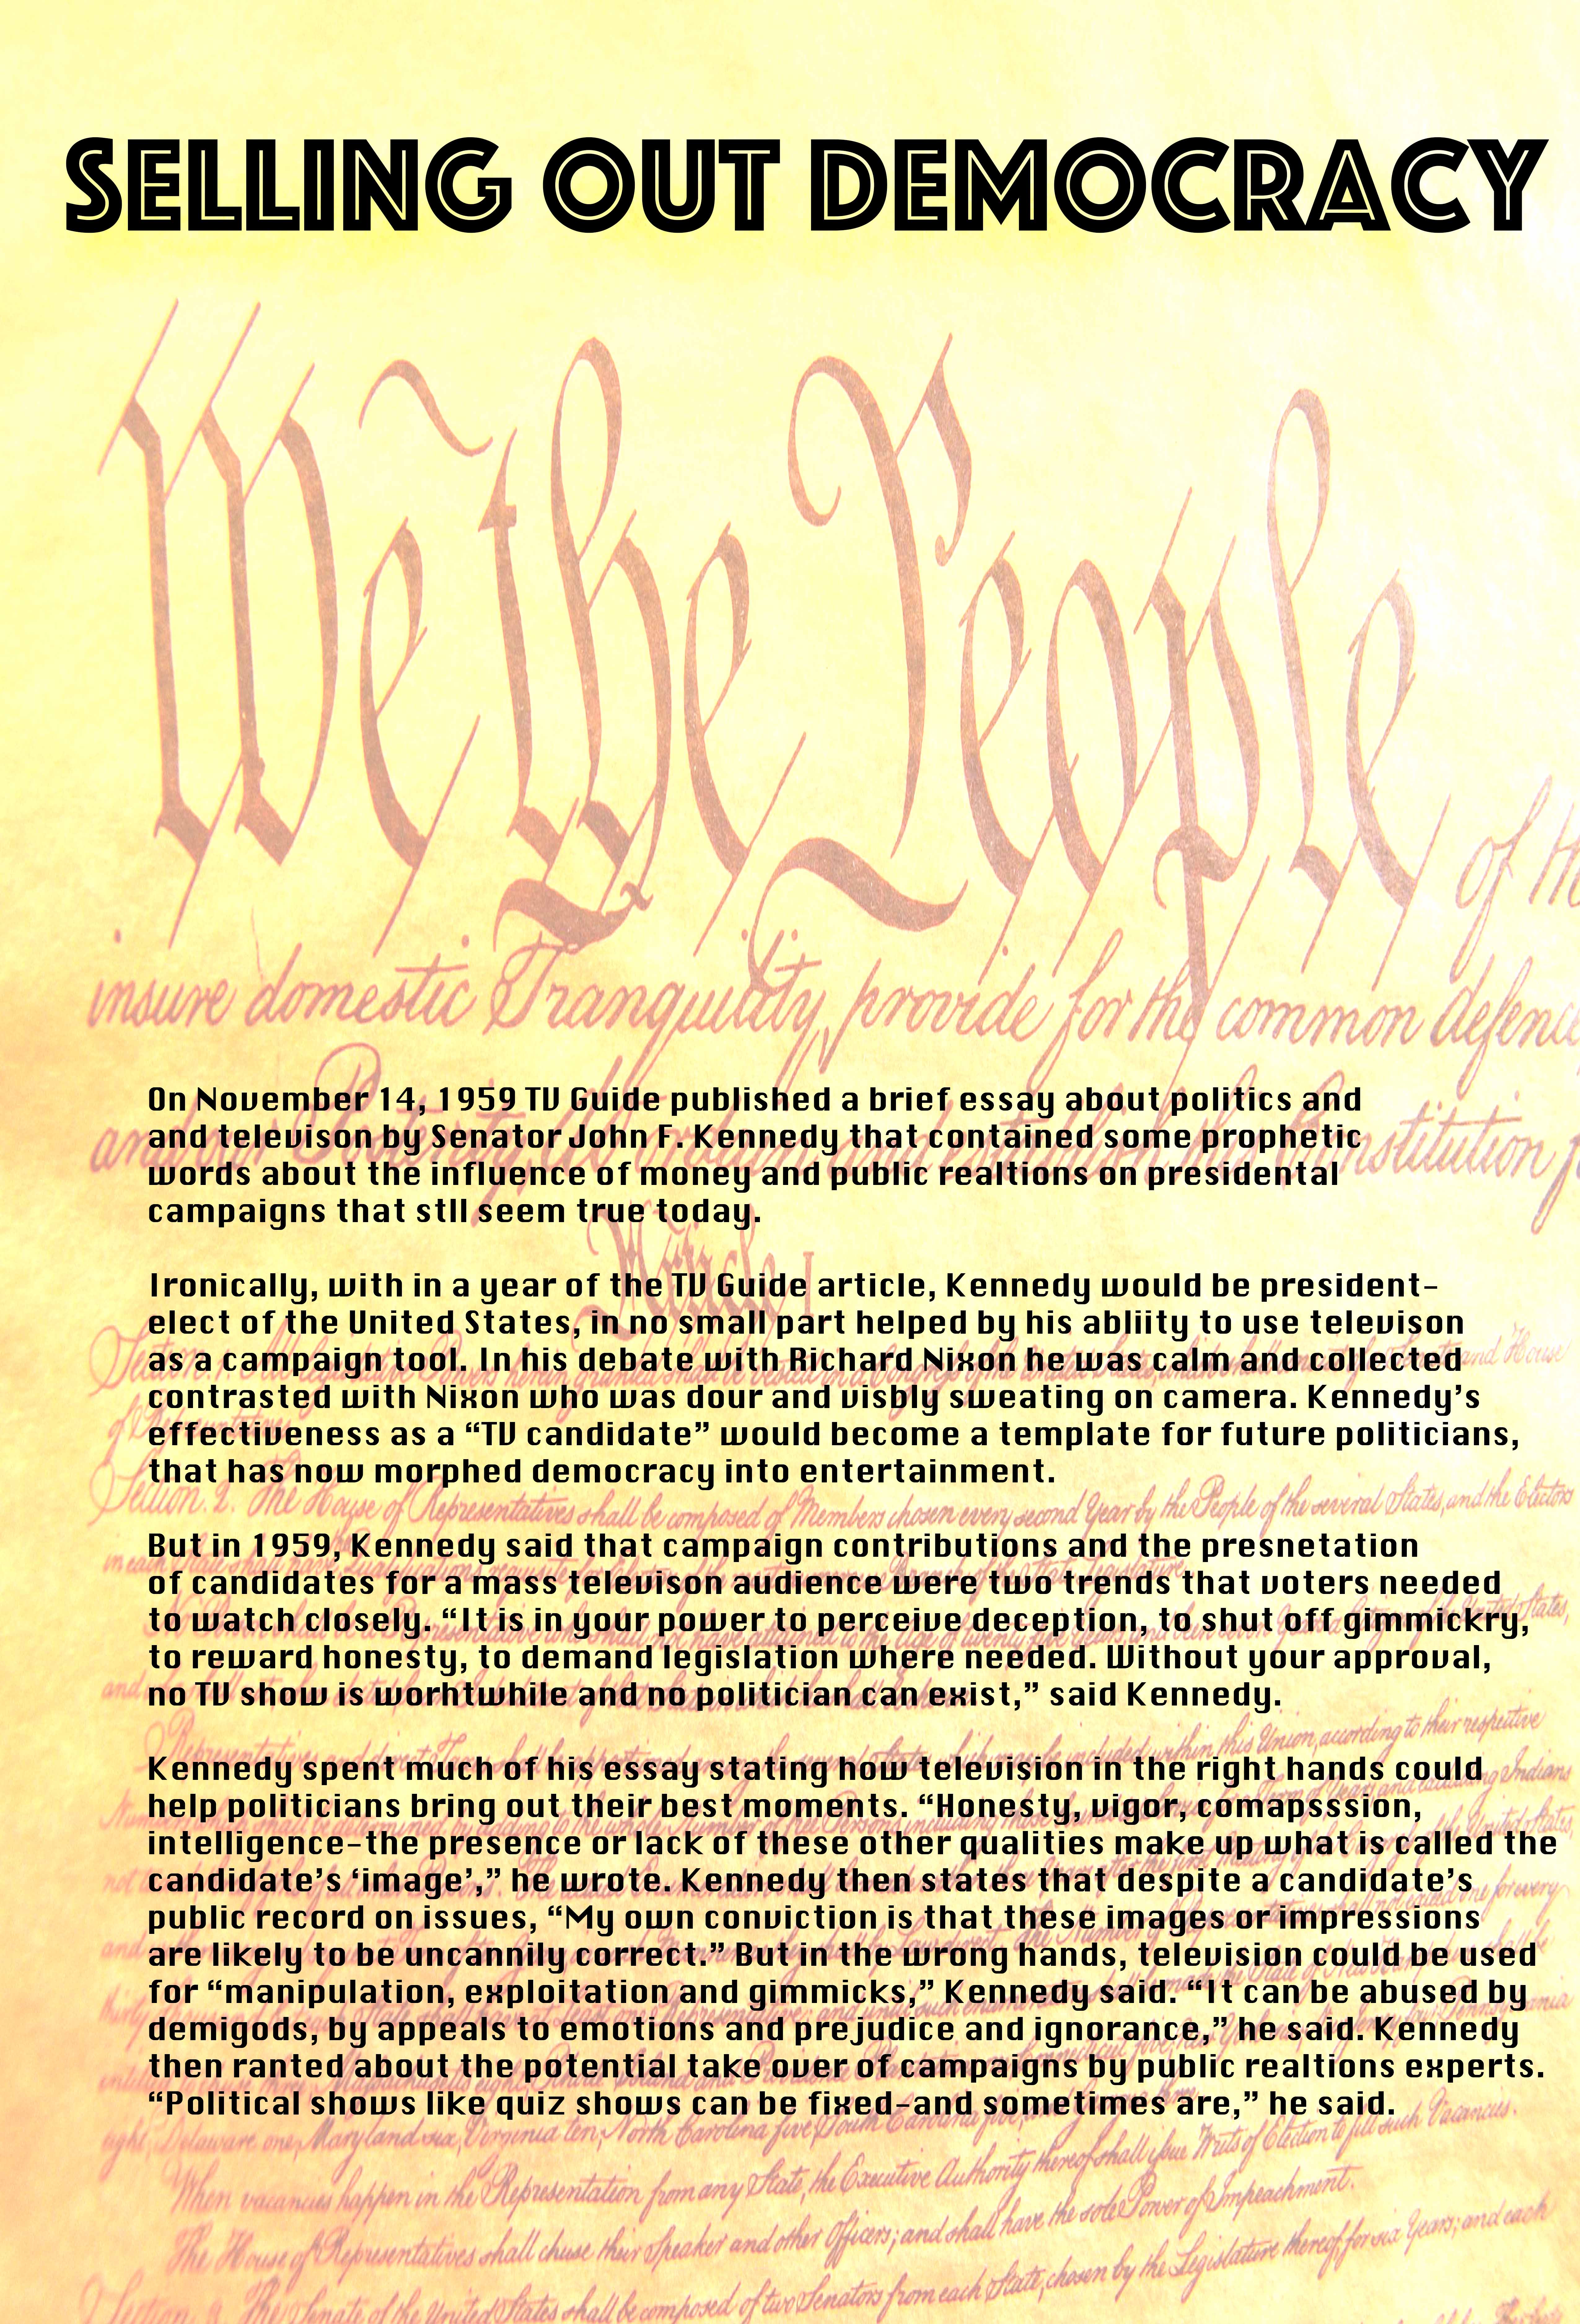 SELLING OUT DEMOCRACY
We the People of the
insure domestic Tranquility, provide for the common defence
On November 14, 1959 TV Guide published a brief essay about politics and
and televison by Senator John F. Kennedy that contained some prophetic
words about the influence of money and public realtions on presidental
campaigns that stll seem true today.
Article I
Ironically, with in a year of the TV Guide article, Kennedy would be president-
elect of the United States, in no small part helped by his abliity to use televison
as a campaign tool. In his debate with Richard Nixon he was calm and collected
contrasted with Nixon who was dour and visbly sweating on camera. Kennedy's
effectiveness as a “TV candidate” would become a template for future politicians,
that has now morphed democracy into entertainment.
Section. 2. The House of Representatives shall be composed of Members chosen every second Year by the People of the several States, and the Electors
But in 1959, Kennedy said that campaign contributions and the presnetation
of candidates for a mass televison audience were two trends that voters needed
to watch closely. “It is in your power to perceive deception, to shut off gimmickry,
to reward honesty, to demand legislation where needed. Without your approval,
no TV show is worhtwhile and no politician can exist,” said Kennedy.
Kennedy spent much of his essay stating how television in the right hands could
help politicians bring out their best moments. “Honesty, vigor, comapsssion,
intelligence-the presence or lack of these other qualities make up what is called the
candidate's ‘image’,” he wrote. Kennedy then states that despite a candidate's
public record on issues, “My own conviction is that these images or impressions
are likely to be uncannily correct.” But in the wrong hands, television could be used
for “manipulation, exploitation and gimmicks,” Kennedy said. “It can be abused by
demigods, by appeals to emotions and prejudice and ignorance,” he said. Kennedy
then ranted about the potential take over of campaigns by public realtions experts.
“Political shows like quiz shows can be fixed-and sometimes are,” he said.
eight, Delaware one, Maryland six, Virginia ten, North Carolina five, South Carolina five,
When vacancies happen in the Representation from any State, the Executive Authority thereof shall issue Writs of Election to fill such Vacancies.
The House of Representatives shall chuse their Speaker and other Officers; and shall have the sole Power of Impeachment.
The Senate of the United States shall be composed of two Senators from each State, chosen by the Legislature thereof, for six Years; and each